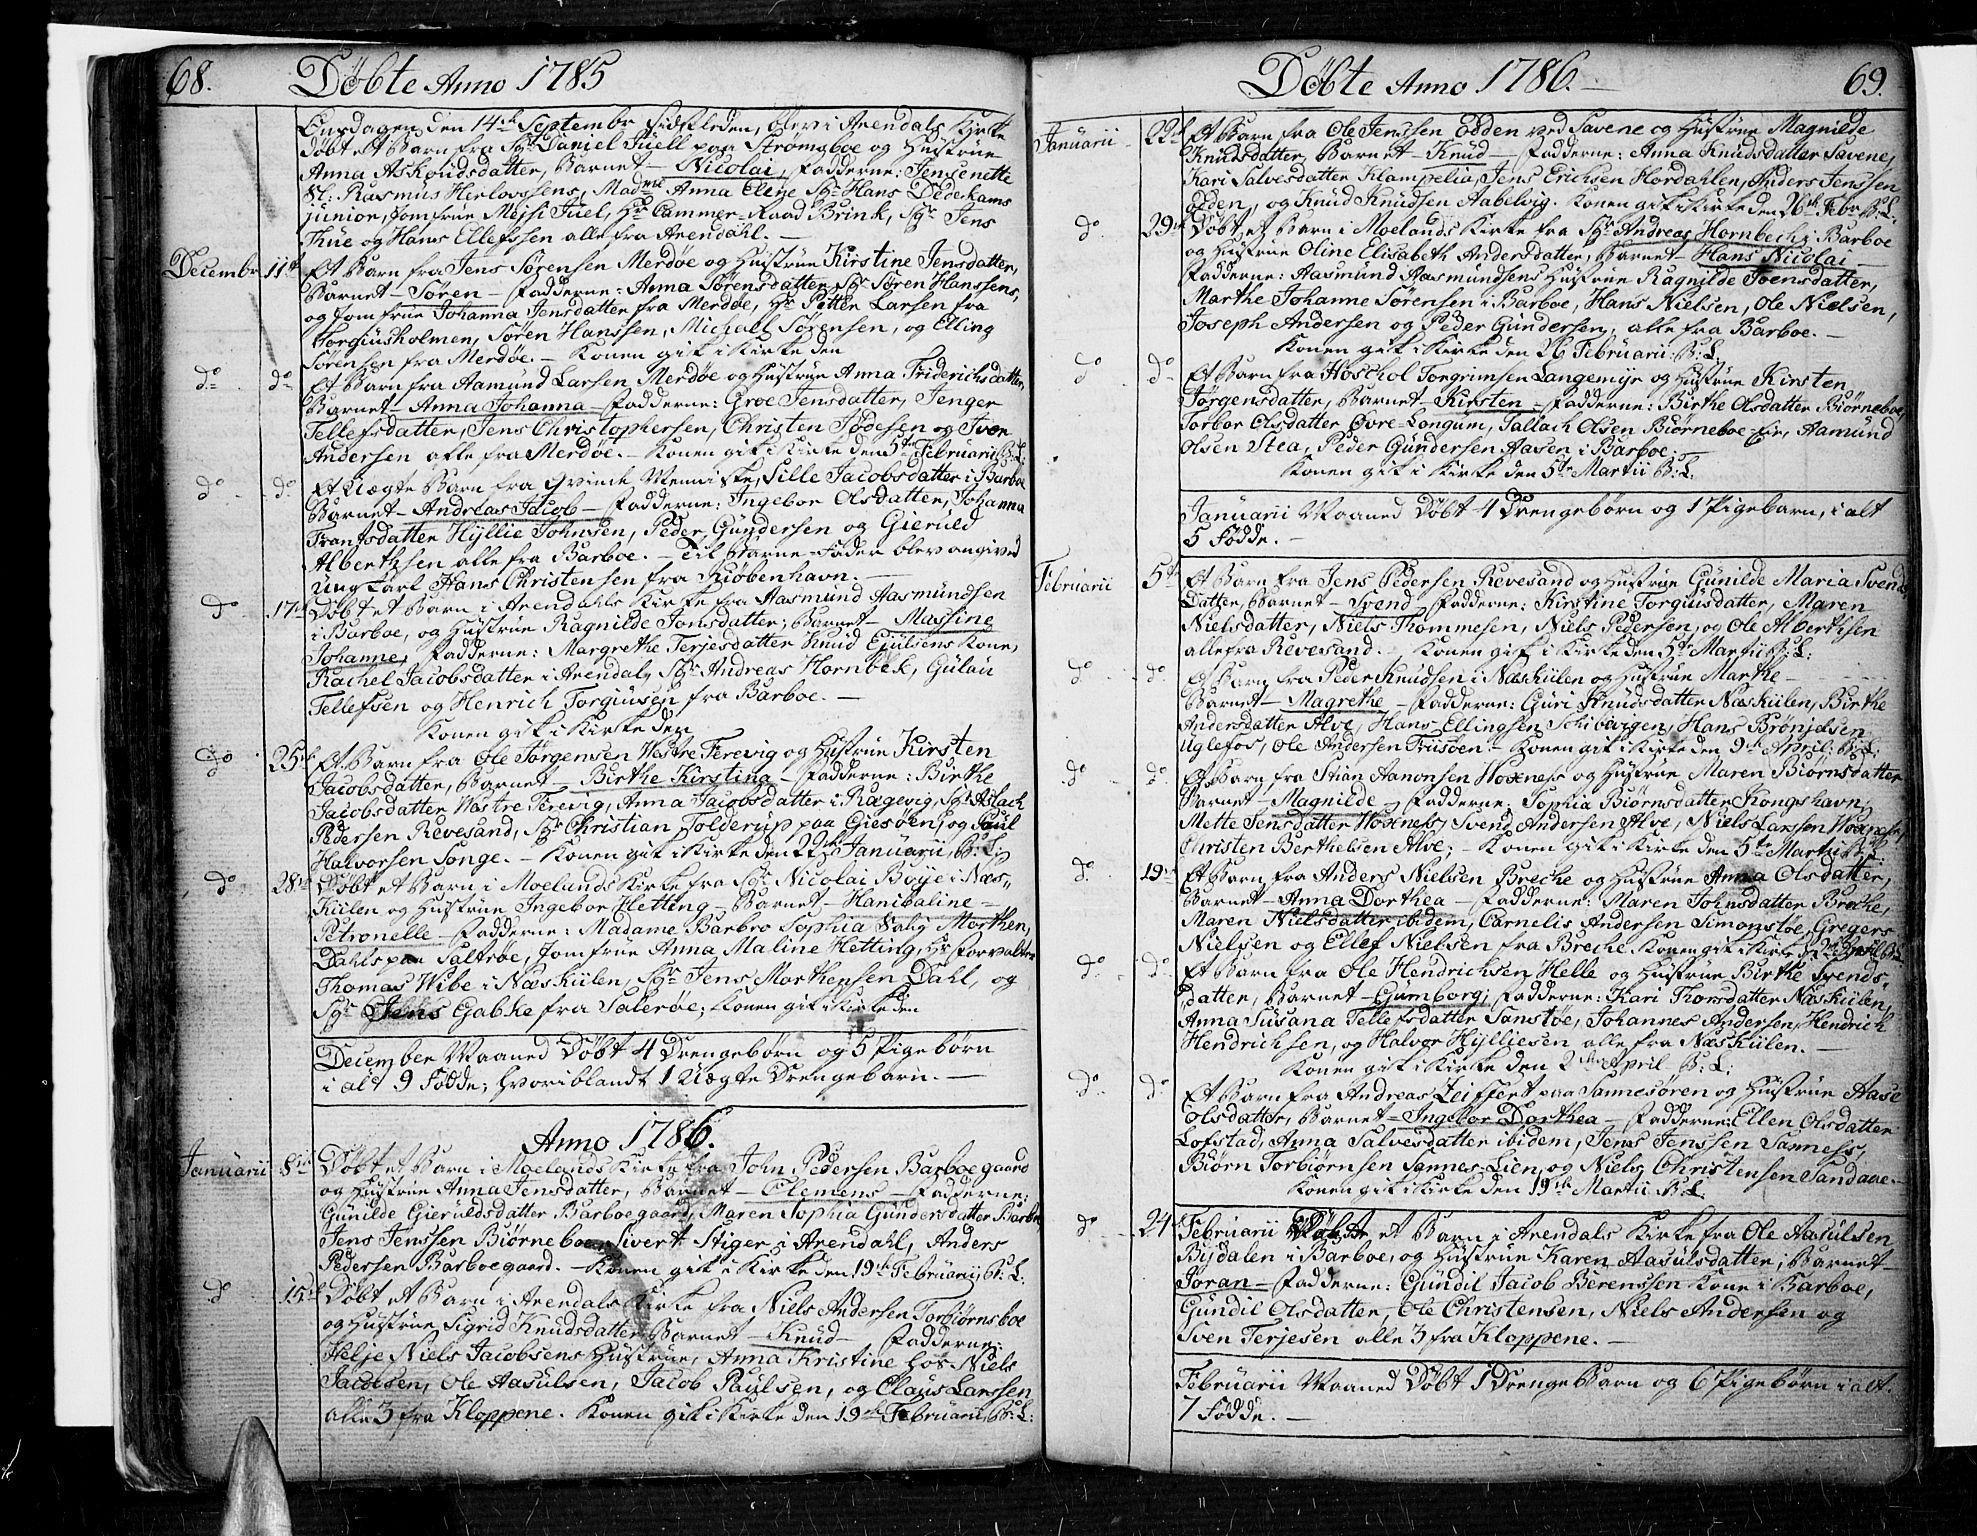 68. Døbte Anno 1785
Onsdagen den 14de Septembr sidstleden, blev i Arendals Kirke
døbt et Barn fra Sr Daniel Juell paa Strømsboe og Hustrue
Anna Askoudsdatter, Barnet - Nicolai, Fadderne: Jensenette
Sl: Rasmus Herlovssens, Madme Anna Elise Sr Hans Dedekams
junior, Jomfrue Mejsi Juel, Hr Cammer-Raad Brink, Sr Jens
Thue og Hans Ellefssen alle fra Arendahl. -
Decembr 11te Et Barn fra Jens Sørensen Merdøe og Hustrue Kirstine Jensdatter,
Barnet - Søren - Fadderne: Anna Sørensdatter, Sr Søren Hanssens,
og Jomfrue Johanna Jensdatter fra Merdøe, Hr Petter Larsen fra
Torgiusholmen, Søren Hanssen, Michael Sørensen, og Elling
Sørensen fra Merdøe. - Konen gik i Kirke den
do do Et Barn fra Aamund Larsen Merdøe og Hustrue Anna Friderichsdatter,
Barnet - Anna Johanna - Fadderne: Groe Jensdatter, Jenger
Tellefsdatter, Jens Christophersen, Christen Jødesen og Iver
Andersen alle fra Merdøe. - Konen gik i Kirke den 5te Februarii B:L:
do do Et Uægte Barn fra Qvinde Menniske, Sille Jacobsdatter i Barboe
Barnet - Andreas Jacob - Fadderne: Ingebor Olsdatter, Johanna
Frantsdatter, Hyllie Johnsen, Peder Gundersen og Gieruld
Albertsen alle fra Barboe. - Til Barne-Fader blev angived
Ung Karl Hans Christensen fra Kiøbenhavn. -
do 17de Døbt et Barn i Arendahls Kirke fra Aasmund Aasmundsen
i Barboe, og Hustrue Ragnilde Jonsdatter, Barnet - Massine
Johanne, Fadderne: Margrethe Terjesdatter Knud Ejulsens Kone,
Rachel Jacobsdatter i Arendal, Sr Andreas Hornbek, Gulau
Tellefsen og Henrich Torgiusen fra Barboe. -
Konen gik i Kirke den
do 25de Et Barn fra Ole Jørgensen Vestre Terevig og Hustrue Kirsten
Jacobsdatter, Barnet - Birthe Kirstina - Fadderne: Birthe
Jacobsdatter Vestre Terevig, Anna Jacobsdatter i Rægevig, Sr Aslach
Pedersen Revesand, Sr Christian Folderup paa Giesøen, og Paul
Halvorsen Songe. - Konen gik i Kirke den 22de Januarii B:L:
do 28de Døbt et Barn i Moelands Kirke fra Sr Nicolai Boye i Næs-
Kiilen og Hustrue Ingebor Hetting - Barnet - Hanibaline -
Petronelle - Fadderne: Madame Barbro Sophia Salig Morthen
Dahls paa Salterøe, Jomfrue Anna Maline Hetting, Hr Forvalter
Thomas Wibe i Næskiilen, Sr Jens Marthensen Dahl, og
Sr Jens Gabke fra Salerøe; Konen gik i Kirke den
December Maaned Døbt 4 Drengebørn og 5 Pigebørn
i alt 9 Fødde; hvoriblandt 1 Uægte Drengebarn. -
Anno 1786.
Januarii 8de Døbt et Barn i Moelands Kirke fra John Pedersen Barboegaard
og Hustrue Anna Jensdatter, Barnet - Clemens - Fadderne:
Gunilde Gieruldsdatter Barboegaard, Maren Sophia Gundersdatter Barboe,
Jens Jenssen Biørneboe, Sivert Stiger i Arendahl, Anders
Pedersen Barboegaard. - Konen gik i Kirke den 19de Februarij B:L:
do 15de Døbt et Barn i Arendals Kirke fra Niels Andersen Torbiørnsboe
og Hustrue Sigrid Knudsdatter, Barnet - Knud - Fadderne:
Helje Niels Jacobsens Hustrue, Anna Kristine hos Niels
Jacobsen, Ole Aasulsen, Jacob Paulsen, og Claus Larssen
alle 3 fra Kloppene. Konen gik i Kirke den 19de Februarii B:L:
Døbte Anno 1786. - 69.
Januarii 22de Et Barn fra Ole Jenssen Odden ved Savene og Hustrue Magnilde
Knudsdatter, Barnet - Knud - Fadderne: Anna Knudsdatter Savene,
Kari Salvesdatter Klampelia, Jens Erichsen Hordahlen, Anders Jenssen
Odden, og Knud Knudsen Aabelvig. Konen gik i Kirke den 26de Febr B:L:
do 29de Døbt et Barn i Moelands Kirke fra Sr Andreas Hornbech i Barboe
og Hustrue Oline Elisabeth Andersdatter, Barnet - Hans Nicolai -
Fadderne: Aasmund Aasmundsens Hustrue Ragnilde Joensdatter,
Marthe Johanne Sørensen i Barboe, Hans Nielsen, Ole Nielsen,
Joseph Andersen og Peder Gundersen, alle fra Barboe. -
Konen gik i Kirke den 26 Februarii B:L:
do do Et Barn fra Høschol Torgrimsen Langemyr og Hustrue Kirsten
Jørgensdatter, Barnet - Kirsten - Fadderne: Birthe Olsdatter Biørneboe,
Torbor Olsdatter Øvre-Longum, Tallach Olsen Biørneboe-Eie, Aamund
Olsen Stea, Peder Gundersen Aasen i Barboe;
Konen gik i Kirke den 5te Martii B:L:
Januarii Maaned Døbt 4 Drengebørn og 1 Pigebarn, i alt
5 Fødde. -
Februarii 5te Et Barn fra Jens Pedersen Revesand og Hustrue Gunilde Maria Svends
Datter, Barnet - Svend - Fadderne: Kirstine Torgiusdatter, Maren
Nielsdatter, Niels Thommesen, Niels Pedersen, og Ole Alberthsen
alle fra Revesand. - Konen gik i Kirke den 5te Martii B:L:
do do Et Barn fra Peder Knudsen i Næskiilen og Hustrue Marthe -
Barnet - Magrethe - Fadderne: Guri Knudsdatter Næskiilen, Birthe
Andersdatter Alve, Hans Ellingsen Schibvigen, Hans Brønjelsen
Uglefos, Ole Andersen Friisøen. - Konen gik i Kirke den 9de April: B:L:
do do Et Barn fra Stian Aanonsen Woxness og Hustrue Maren Biørnsdatter
Barnet - Magnilde - Fadderne: Sophia Biørnsdatter Kongshavn,
Mette Jensdatter Woxness, Svend Andersen Alve, Niels Larssen Woxness,
Christen Berthelsen Alve; - Konen gik i Kirke den 5te Martii B:L:
do 19de Et Barn fra Anders Nielsen Breche og Hustrue Anna Olsdatter,
Barnet - Anna Dorthea - Fadderne: Maren Johnsdatter Breche,
Maren Nielsdatter ibidem, Carnelis Andersen Simonstøe, Gregers
Nielsen og Ellef Nielsen fra Breche Konen gik i Kirke d 2de April B:L:
do do Et Barn fra Ole Hendrichsen Helle og Hustrue Birthe Svends-
datter, Barnet - Gumborg; Fadderne: Kari Thorsdatter Næskiilen,
Anna Susana Tellefsdatter Sanstøe, Johannes Andersen, Hendrich
Hendrichsen, og Halvor Hylliesen alle fra Næskiilen. -
Konen gik i Kirke den 2den April B:L:
do do Et Barn fra Andreas Zeiffert paa Sannesøren og Hustrue Aase
Olsdatter, Barnet - Ingebor Dorthea - Fadderne: Ellen Olsdatter
Lofstad, Anna Salvesdatter ibidem, Jens Jenssen Sanness,
Biørn Torbiørnsen Sannes-Lien, og Niels Christensen Sandaae. -
Konen gik i Kirke den 19de Martii B:L:
do 24 Februarii Døbt et Barn i Arendals Kirke fra Ole Aasulsen
Bijdalen i Barboe, og Hustrue Karen Aasulsdatter, Barnet -
Joran - Fadderne: Gundil Jacob Berenssen Kone i Barboe,
Gundil Olsdatter, Ole Christensen, Niels Andersen og
Sven Terjesen alle 3 fra Kloppene. -
Februarii Maaned Døbt 1 Drenge Barn og 6 Pigebørn i alt
7 Fødde. -